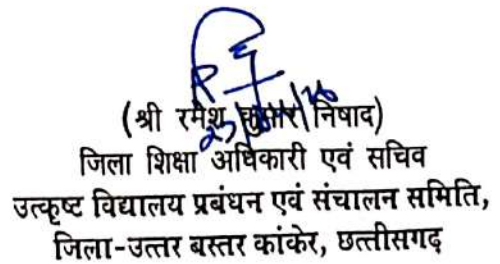 (श्री रमेश कुमार निषाद)
जिला शिक्षा अधिकारी एवं सचिव
उत्कृष्ट विद्यालय प्रबंधन एवं संचालन समिति,
जिला-उत्तर बस्तर कांकेर, छत्तीसगढ़